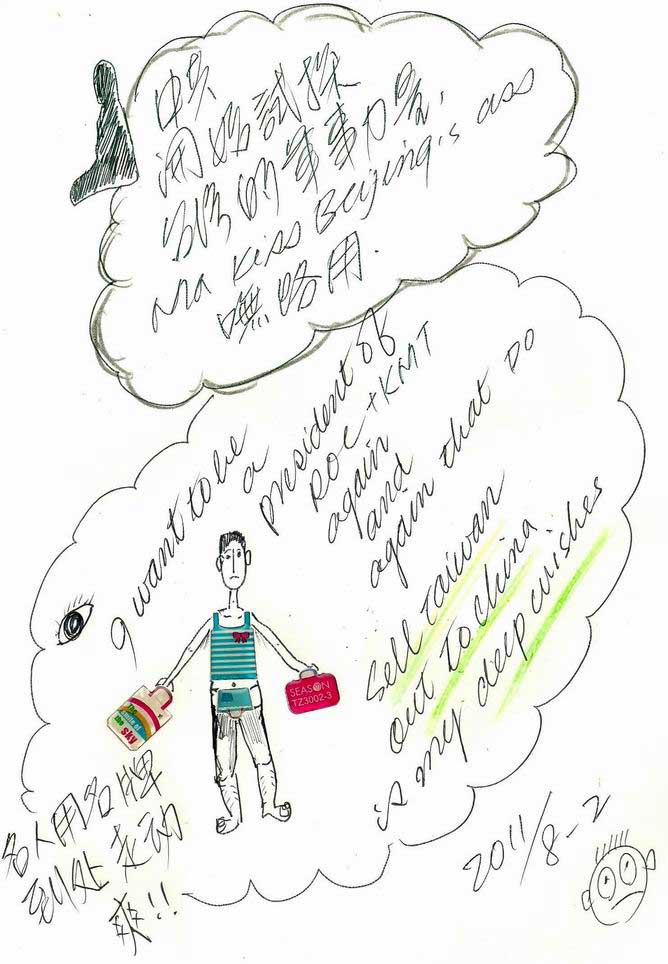 中共
開始試探
台灣的軍事力量,
Ma Kiss Beijing's ass
嘸路用.
I want to be
a
president of
ROC + KMT
again
and
again that DO
Sell Taiwan
out To China
is my deep wishes
The
smile of
the
sky
SEASON
TZ3002-3
名人用名牌
到处走动
爽!!
2011/8-2